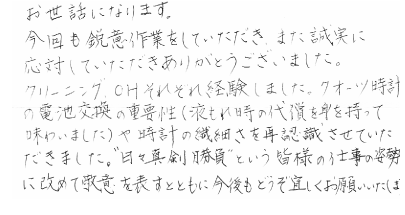 お世話になります。
今回も鋭意作業をしていただき、また誠実に
応対していただきありがとうございました。
クリーニング、OHそれぞれ経験しました。クオーツ時計
の電池交換の重要性(液もれ時の代償を身を持って
味わいました)や時計の繊細さを再認識させていた
だきました。“日々真剣勝負”という皆様の仕事の姿勢
に改めて敬意を表すとともに今後もどうぞ宜しくお願いいたしま